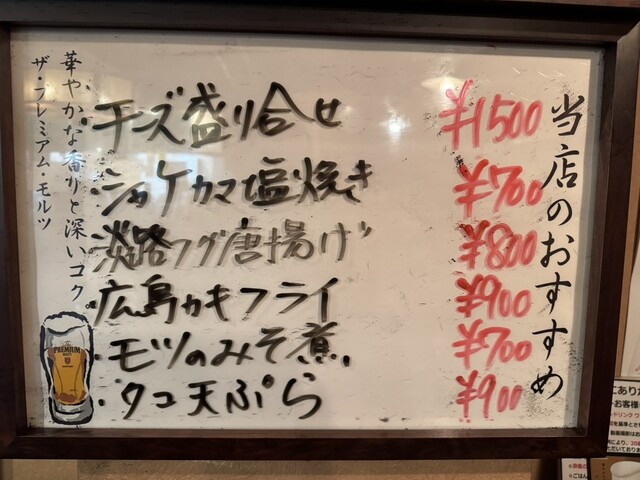 当店のおすすめ
・チーズ盛り合せ ¥1500
・シャケカマ塩焼き ¥700
・淡路フグ唐揚げ ¥800
・広島カキフライ ¥900
・モツのみそ煮 ¥700
・タコ天ぷら ¥900
華やかな香りと深いコク。
ザ・プレミアム・モルツ
PREMIUM